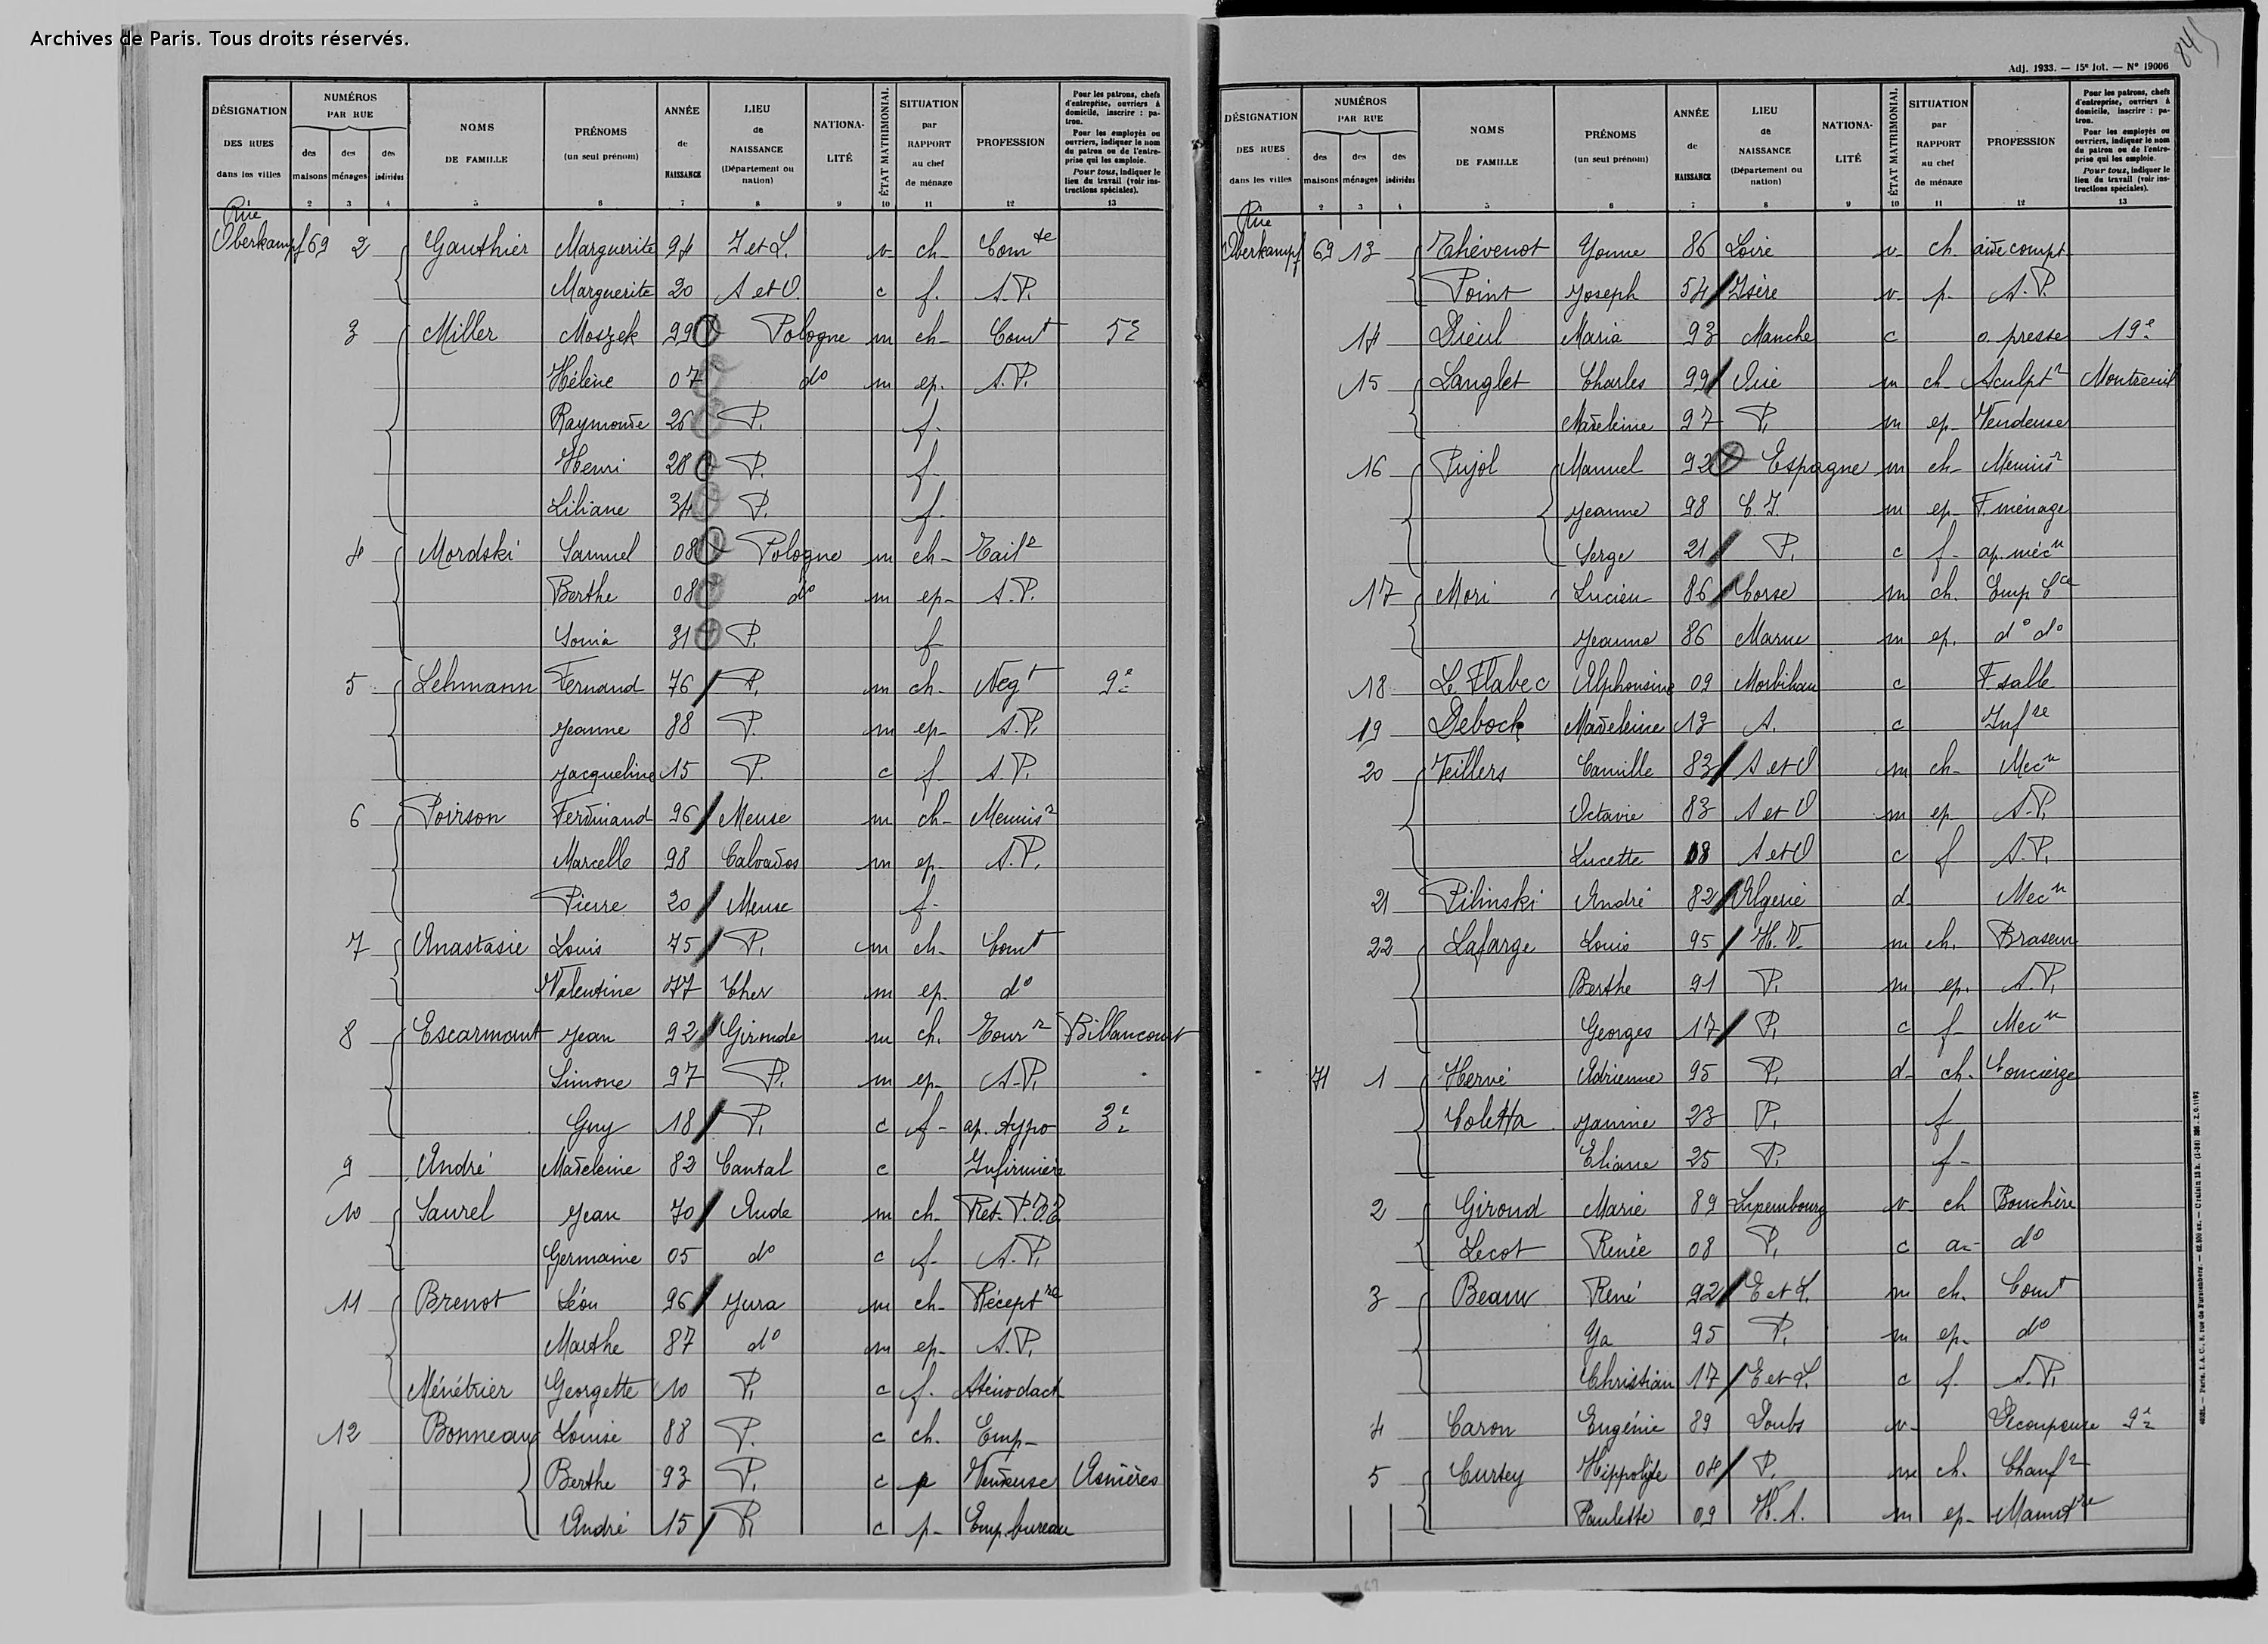 Archives de Paris. Tous droits réservés.
DÉSIGNATION DES RUES dans les villes
NUMÉROS PAR RUE
des maisons 2
des ménages 3
des individus 4
NOMS DE FAMILLE 5
PRÉNOMS (un seul prénom) 6
ANNÉE de NAISSANCE 7
LIEU de NAISSANCE (Département ou nation) 8
NATIONALITÉ 9
ÉTAT MATRIMONIAL 10
SITUATION par RAPPORT au chef de ménage 11
PROFESSION 12
Pour les patrons, chefs d'entreprise, ouvriers à domicile, inscrire : patron.
Pour les employés ou ouvriers, indiquer le nom du patron ou de l'entreprise qui les emploie.
Pour tous, indiquer le lieu du travail (voir instructions spéciales). 13
Rue
Oberkampf 69 2 Gauthier Marguerite 94 I et L. v ch- Com te
Marguerite 20 S et O. c f. S.P.
3 Miller Moszek 99 Pologne m ch- Comt 5e
Hélène 07 do m ep. S.P.
Raymonde 26 P. f.
Henri 28 P. f-
Liliane 34 P. f-
4 Mordski Samuel 08 Pologne m ch- Tailr
Berthe 08 do m ep- S.P.
Sonia 31 P. f
5 Lehmann Fernand 76 P. m ch- Negt 9e
Jeanne 88 P. m ep- S.P.
Jacqueline 15 P. c f S.P.
6 Poirson Ferdinand 96 Meuse m ch- Menuisr
Marcelle 98 Calvados m ep- S.P.
Pierre 20 Meuse f-
7 Anastasie Louis 75 P. m ch- Comt
Valentine 77 Cher m ep. do
8 Escarmant Jean 92 Gironde m ch. Tourr Billancourt
Simone 97 P. m ep- S.P.
Guy 18 P. c f- ap. typo 3e
9 André Madeleine 82 Cantal c Infirmière
10 Saurel Jean 70 Aude m ch- Ret. P.T.T.
Germaine 05 do c f- S.P.
11 Brenot Léon 96 Jura m ch- Récept re
Marthe 87 do m ep- S.P.
Ménétrier Georgette 10 P. c f. Sténo dact
12 Bonneau Louise 88 P. c ch. Emp-
Berthe 93 P. c p Vendeuse Asnières
André 15 P. c p- Emp. bureau
Adj. 1933. — 15e lot. — N° 19006
845
DÉSIGNATION DES RUES dans les villes
NUMÉROS PAR RUE
des maisons 2
des ménages 3
des individus 4
NOMS DE FAMILLE 5
PRÉNOMS (un seul prénom) 6
ANNÉE de NAISSANCE 7
LIEU de NAISSANCE (Département ou nation) 8
NATIONALITÉ 9
ÉTAT MATRIMONIAL 10
SITUATION par RAPPORT au chef de ménage 11
PROFESSION 12
Pour les patrons, chefs d'entreprise, ouvriers à domicile, inscrire : patron.
Pour les employés ou ouvriers, indiquer le nom du patron ou de l'entreprise qui les emploie.
Pour tous, indiquer le lieu du travail (voir instructions spéciales). 13
Rue
Oberkampf 69 13 Thévenot Yonne 86 Loire v- ch. aide compt.
Point Joseph 54 Isère v- p- S.P.
14 Dieul Maria 93 Manche c o. presse 19e
15 Langlet Charles 99 Oise m ch- Sculptr Montreuil
Madeleine 97 P. m ep- Vendeuse
16 Pujol Manuel 92 Espagne m ch- Menuisr
Jeanne 98 m ep- F. ménage
Serge 21 P. c f- ap. mécn
17 Mori Lucien 86 Corse m ch. Emp Cce
Jeanne 86 Marne m ep. do do
18 Le Flabec Alphonsine 09 Morbihan c F. salle
19 Debock Madeleine 13 S. c Infre
20 Veillers Camille 83 S et O m ch- Mecn
Octavie 83 S et O m ep- S.P.
Lucette 08 S et O c f S.P.
21 Pilinski André 82 Algérie d. Mecn
22 Lafarge Louis 95 H.V. m ch. Braseur
Berthe 91 P. m ep. S.P.
Georges 17 P. c f- Mecn
71 1 Hervé Adrienne 95 P. d- ch. Concierge
Coletta Janine 23 P. f
Eliane 25 P. f-
2 Giroud Marie 89 Luxembourg v- ch Bouchère
Lecot Renée 08 P. c do
3 Beauv René 92 E et L. m ch. Comt
Ya 95 P. m ep- do
Christian 17 E et L. c f. S.P.
4 Caron Eugénie 89 Doubs v- Découpeuse 9e
5 Cursey Hippolyte 04 P. m ch. Chaufr
Paulette 09 H.S. m ep- Manutre